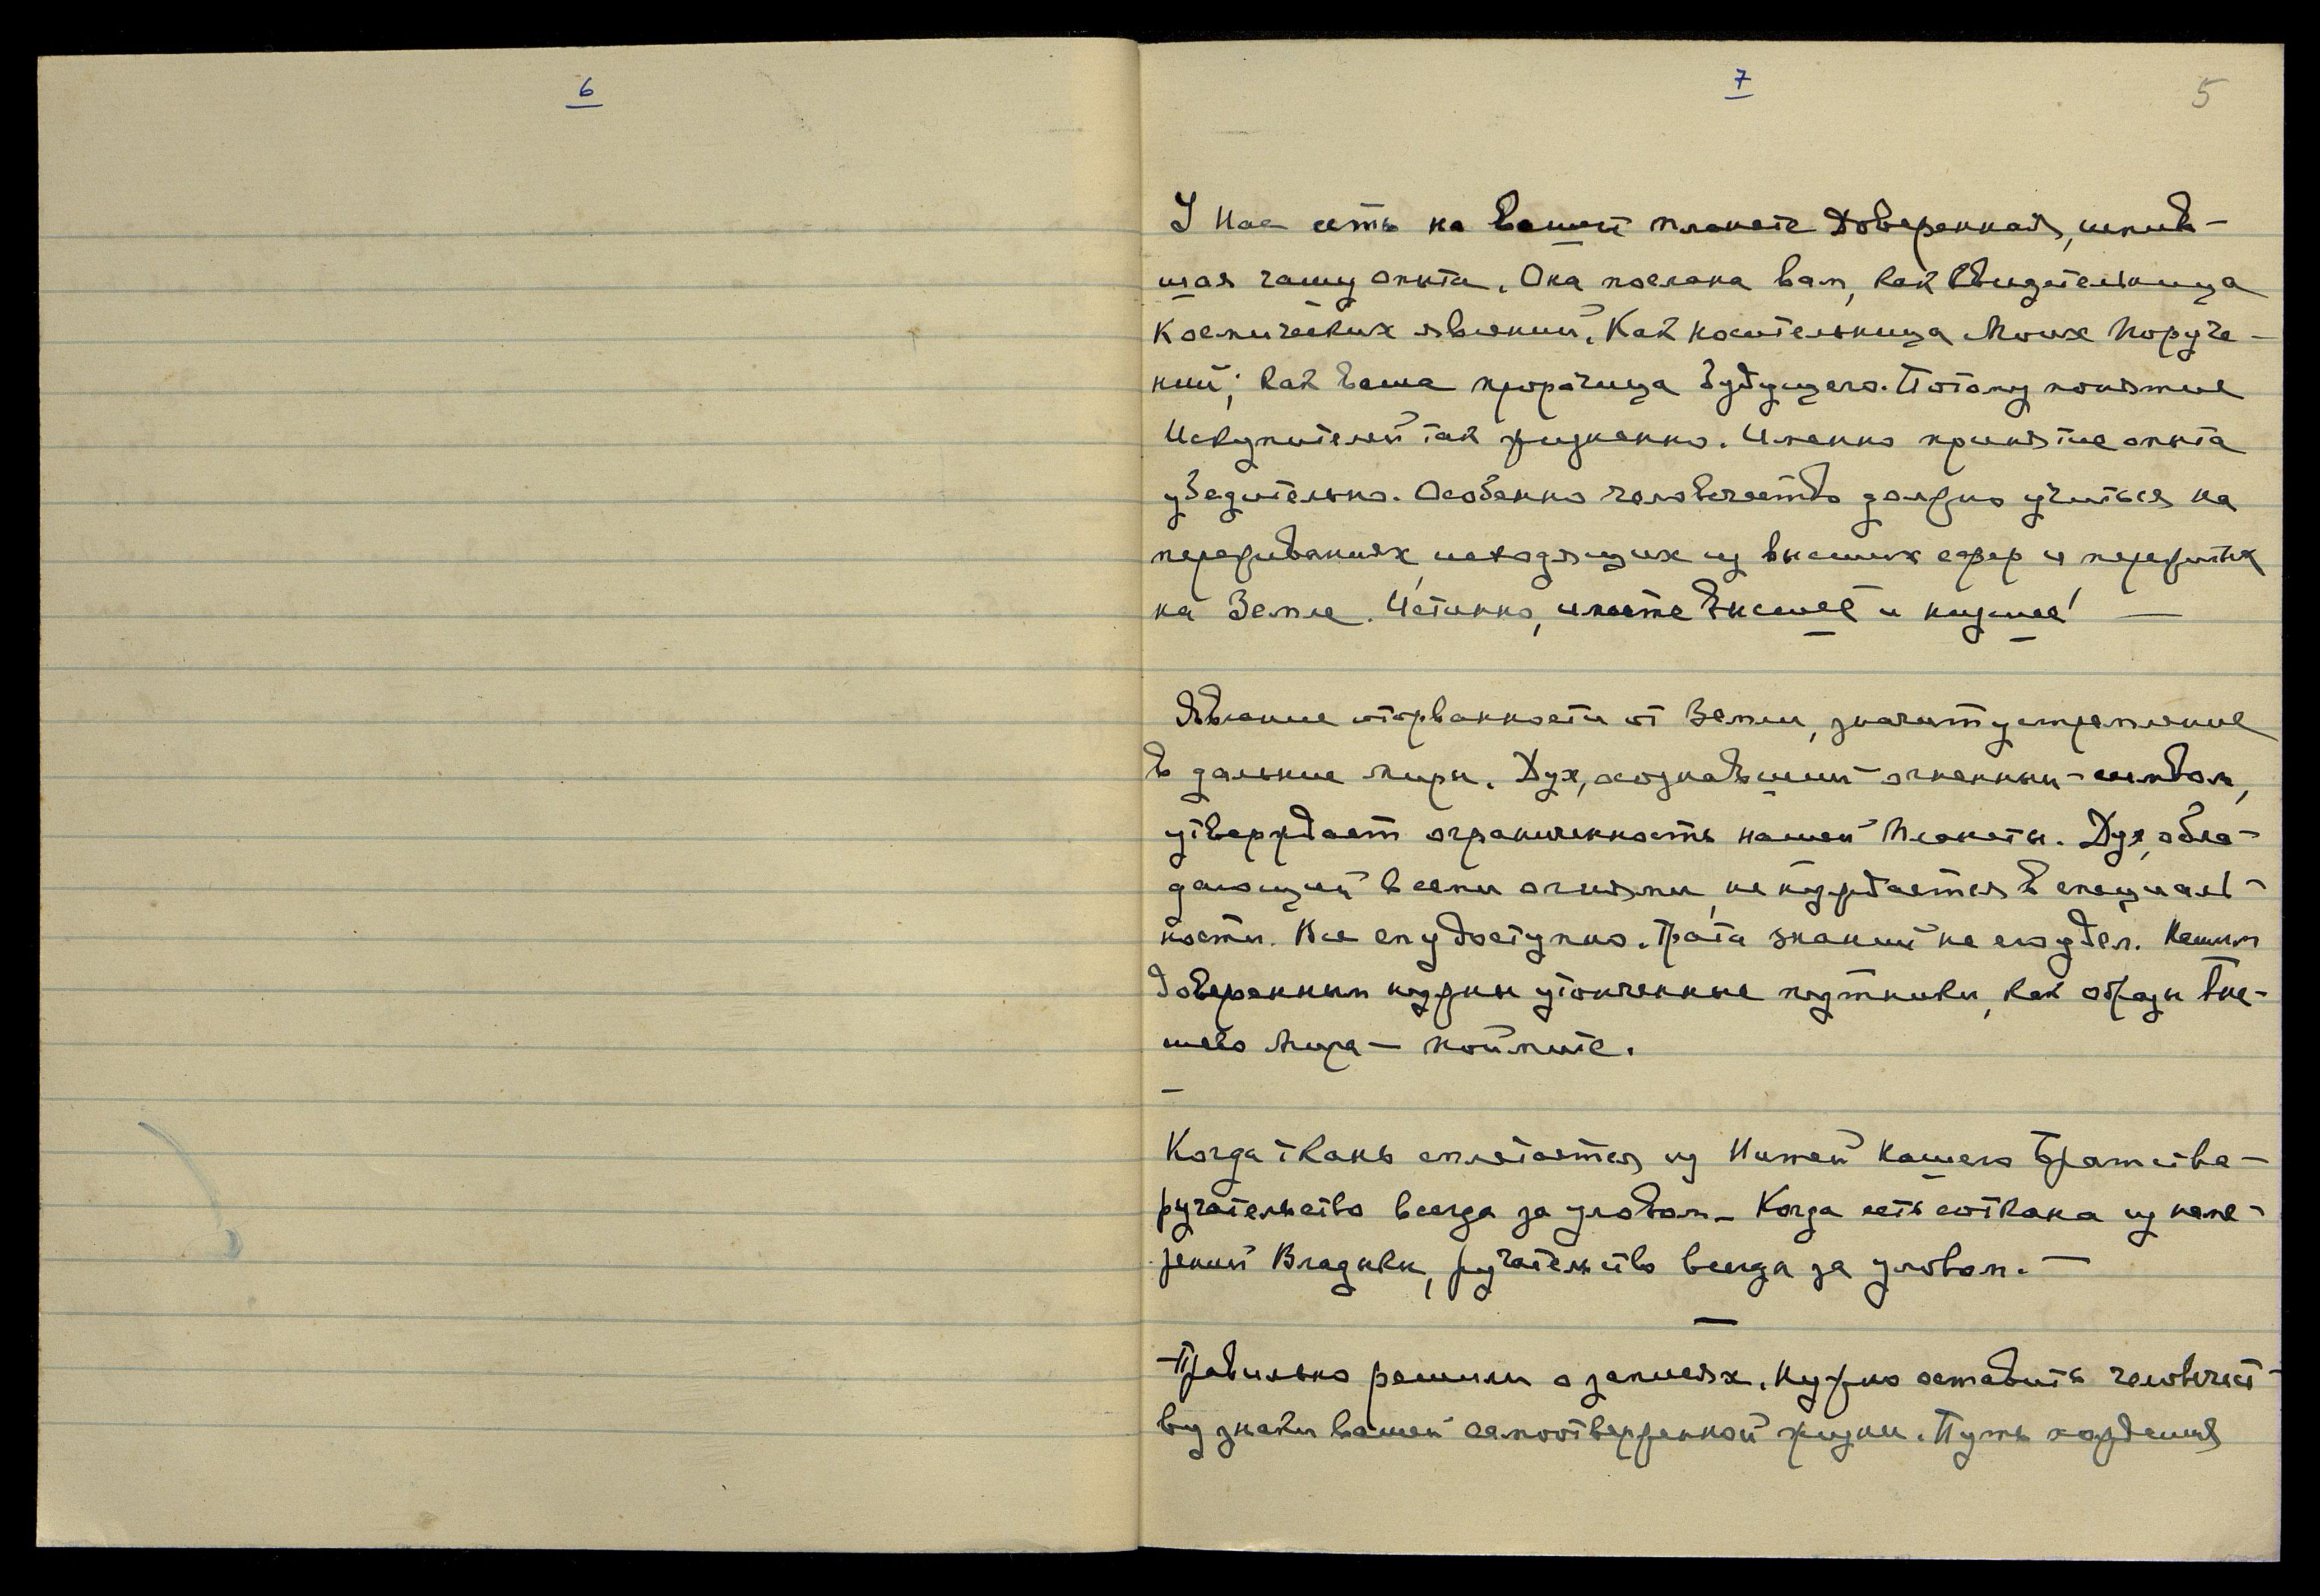 6
7
5
У Нас есть на вашей планете Доверенная, испив-
шая чашу опыта. Она послана вам, как свидетельница
Космических явлений, Как носительница Моих Поруче-
ний; как ваша пророчица будущего. Потому понятие
Искупителей так жизненно. Именно принятие опыта
убедительно. Особенно человечество должно учиться на
переживаниях, исходящих из высших сфер и пережитых
на Земле. Истинно, имеете высшее и низшее! —
Явление оторванности от Земли, значит устремление
в дальние миры. Дух, осознавший огненный символ,
утверждает ограниченность нашей Планеты. Дух, обла-
дающий всеми огнями, не нуждается в специаль-
ности. Все ему доступно. Трата знаний не его удел. Нашим
доверенным нужны утонченные подтники, как образы выс-
шего Мира — поймите.
—
Когда ткань сплетается из Нитей нашего Братства —
ручательство всегда за уловом. Когда сеть соткана из наме-
рений Владыки, ручательство всегда за уловом. —
—
Правильно решили о записях. Нужно оставить человечест-
ву знаки вашей самоотверженной жизни. Путь хождения